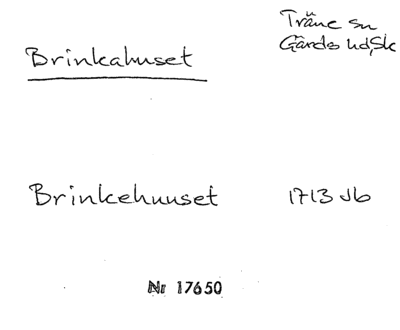 Träne sn
Gärds hd, Sk
Brinkahuset
Brinkehuuset 1713 Jb
Nr 17650